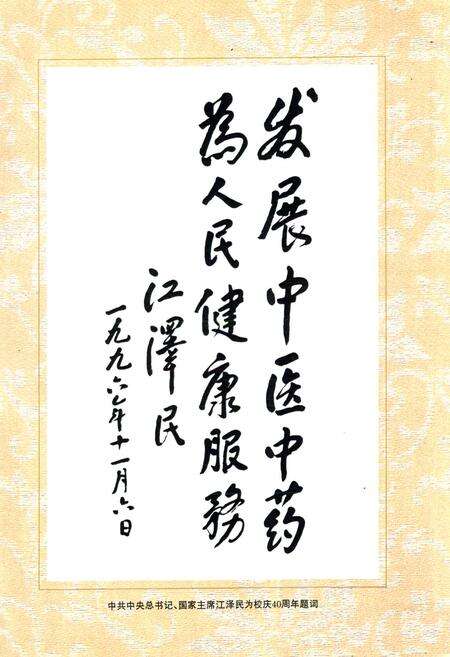 发展中医中药
為人民健康服務
江澤民
一九九六年十一月六日
中共中央总书记、国家主席江泽民为校庆40周年题词